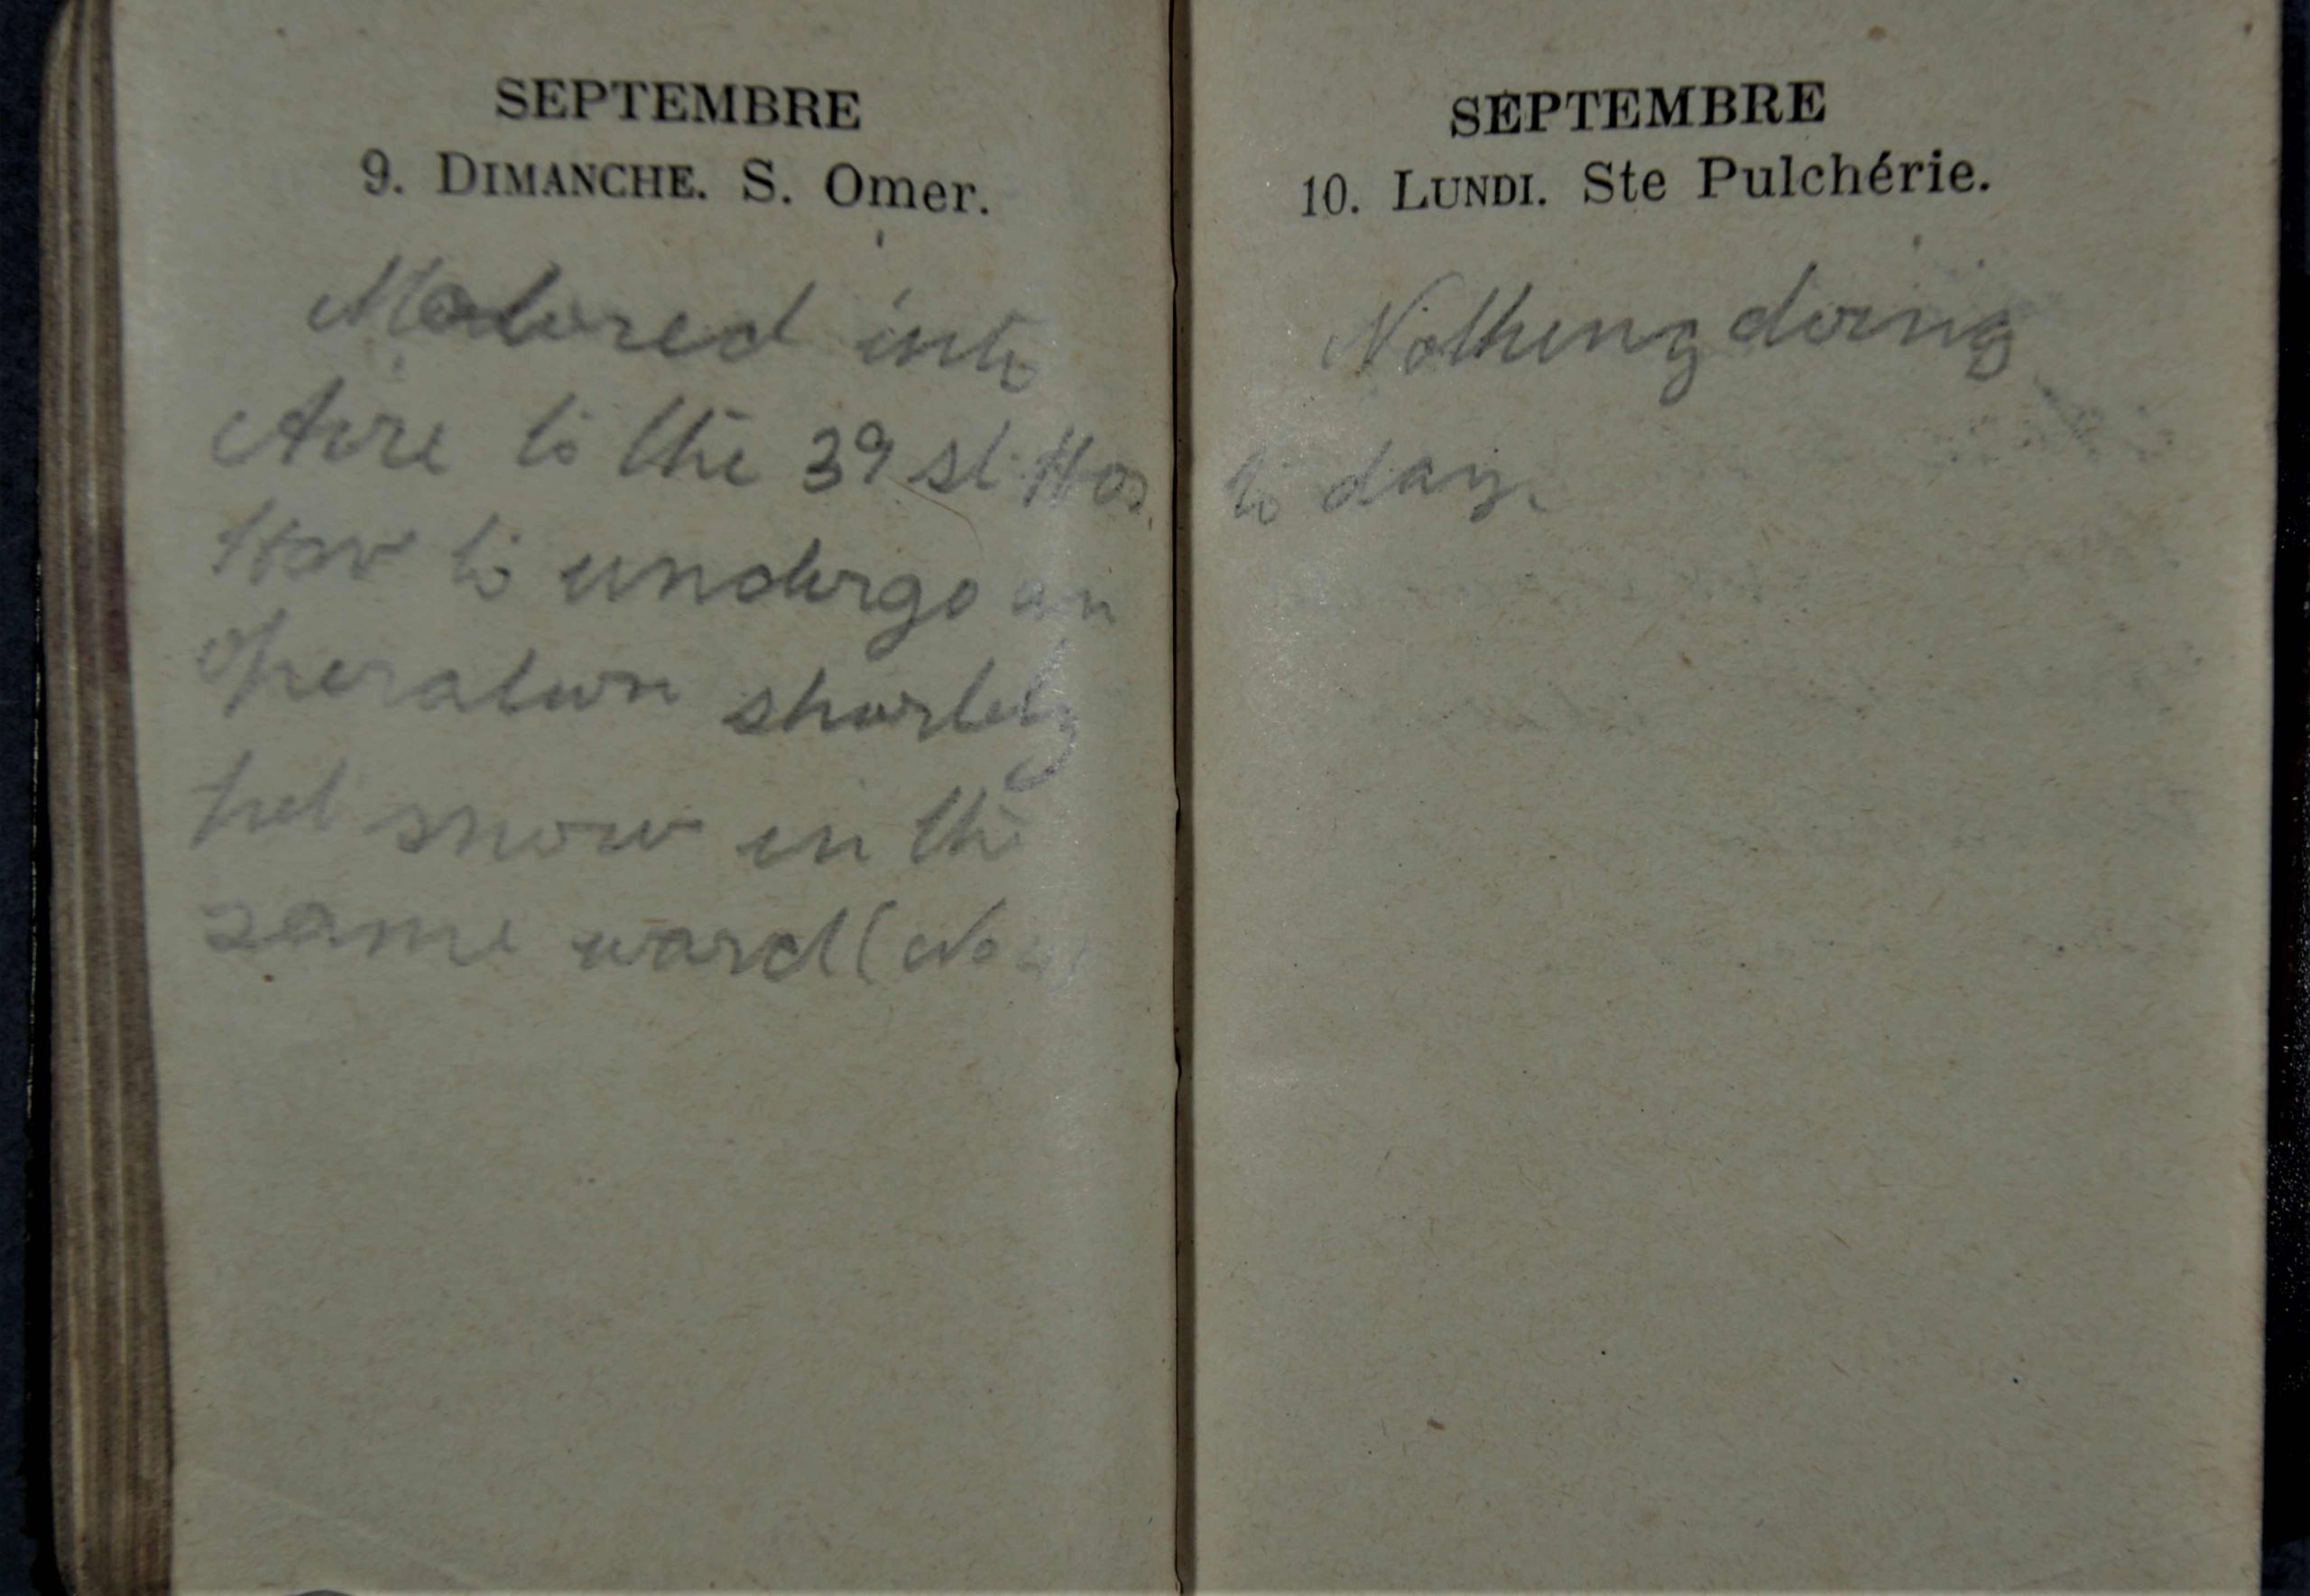 SEPTEMBRE
9. DIMANCHE. S. Omer.
Motored into
Aire to the 39 st. Hos.
Hav to undergo an
operation shortly
snow in the
same ward (No
SEPTEMBRE
10. LUNDI. Ste Pulchérie.
Nothing doing
to day.